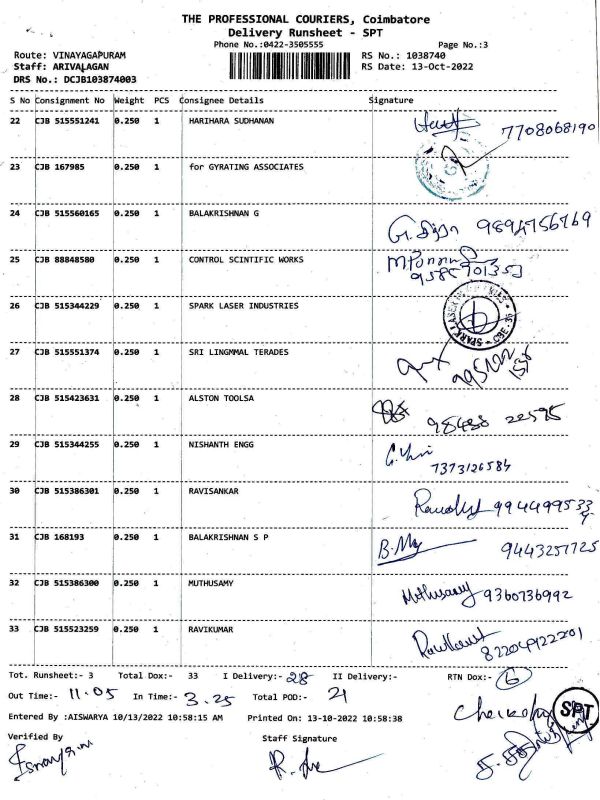 THE PROFESSIONAL COURIERS, Coimbatore
Delivery Runsheet - SPT
Phone No.:0422-3505555 Page No.:3
Route: VINAYAGAPURAM RS No.: 1038740
Staff: ARIVALAGAN RS Date: 13-Oct-2022
DRS No.: DCJB103874003
S No Consignment No Weight PCS Consignee Details Signature
22 CJB 515551241 0.250 1 HARIHARA SUDHANAN 7708068190
23 CJB 167985 0.250 1 for GYRATING ASSOCIATES
24 CJB 515560165 0.250 1 BALAKRISHNAN G 9894756769
25 CJB 88848580 0.250 1 CONTROL SCINTIFIC WORKS
26 CJB 515344229 0.250 1 SPARK LASER INDUSTRIES
27 CJB 515551374 0.250 1 SRI LINGMMAL TERADES
28 CJB 515423631 0.250 1 ALSTON TOOLSA 98438 22595
29 CJB 515344255 0.250 1 NISHANTH ENGG 7373126584
30 CJB 515386301 0.250 1 RAVISANKAR
31 CJB 168193 0.250 1 BALAKRISHNAN S P 9443257725
32 CJB 515386300 0.250 1 MUTHUSAMY Muthusamy 9360736992
33 CJB 515523259 0.250 1 RAVIKUMAR
Tot. Runsheet:- 3 Total Dox:- 33 I Delivery:- 28 II Delivery:- RTN Dox:- 6
Out Time:- 11.05 In Time:- 3.25 Total POD:- 21
Entered By :AISWARYA 10/13/2022 10:58:15 AM Printed On: 13-10-2022 10:58:38
SPT
Verified By Staff Signature